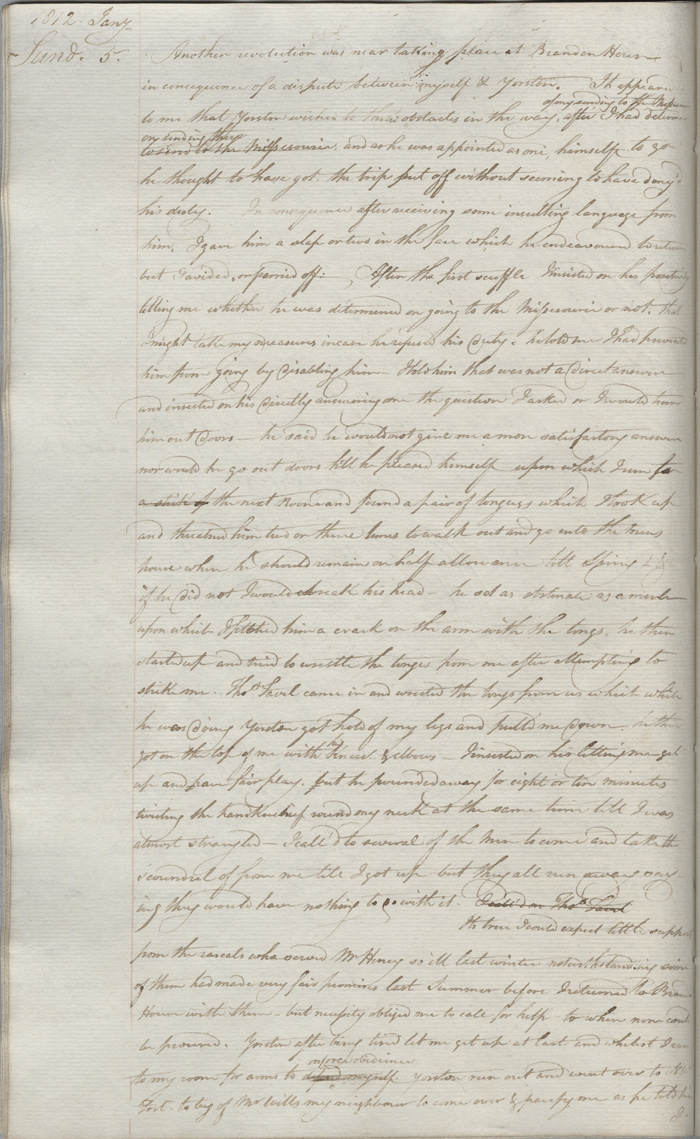 1812. Jany
Sund. 5. Another revolution was near taking place at Brandon House
in consequence of a dispute between myself & Yorston. It appears
of my sending to the Missouri
to me that Yorston wished to throw obstacles in the way, after I had determined
on sending there
to send to the Missourie, and as he was appointed as one, himself to go
he thought to have got the trip put off without seeming to have deny'd
his duty. In consequence after receiving some insulting language from
him, I gave him a slap or two in the face which he endeavoured to return
but I avoided, or parried off: After the first scuffle I insisted on his positively
telling me whether he was determined on going to the Missourie or not, that
I might take my measures in case he refused his duty; he told me I had prevented
him from going by disabling him – I told him that was not a direct answer
and insisted on his directly answering me the question I asked or I would turn
him out doors – he said he would not give me a more satisfactory answer
nor would he go out doors till he pleased himself upon which I run for
a stick of the next Room and found a pair of tongues which I took up
and threatned him two or three times to walk out and go into the mens
house where he should remain on half allowance till Spring &
if he did not I would break his head – he sat as obstinate as a mule
upon which I fetched him a crack on the arm with the tongs, he then
started up and tried to wrestle the tongs from me after attempting to
strike me. Thos. Favel came in and wrested the tongs from us which while
he was doing Yorston got hold of my legs and pulled me down. he then
got on the top of me with his knees & elbows – I insisted on his letting me get
up and have fair play, but he pounded away for eight or ten minutes
twisting the handkerchief round my neck at the same time till I was
almost strangled – I call'd to several of the Men to come and take the
scoundrel of from me till I got up but they all run away say-
ing they would have nothing to do with it. I called on Thos. Favel
Its true I could expect little support
from the rascals who served Mr Heney so ill last winter notwithstanding some
of them had made very fair promises last Summer before I returned to Brandon
House with them – but necessity obliged me to call for help to where none could
be procured. Yorston after being tired let me get up at last and whilst I run
enforce obedience
to my room for arms to defend myself. Yorston run out and went over to
Fort – to beg of Mr Wills my neighbour to come over & pacify me as he told